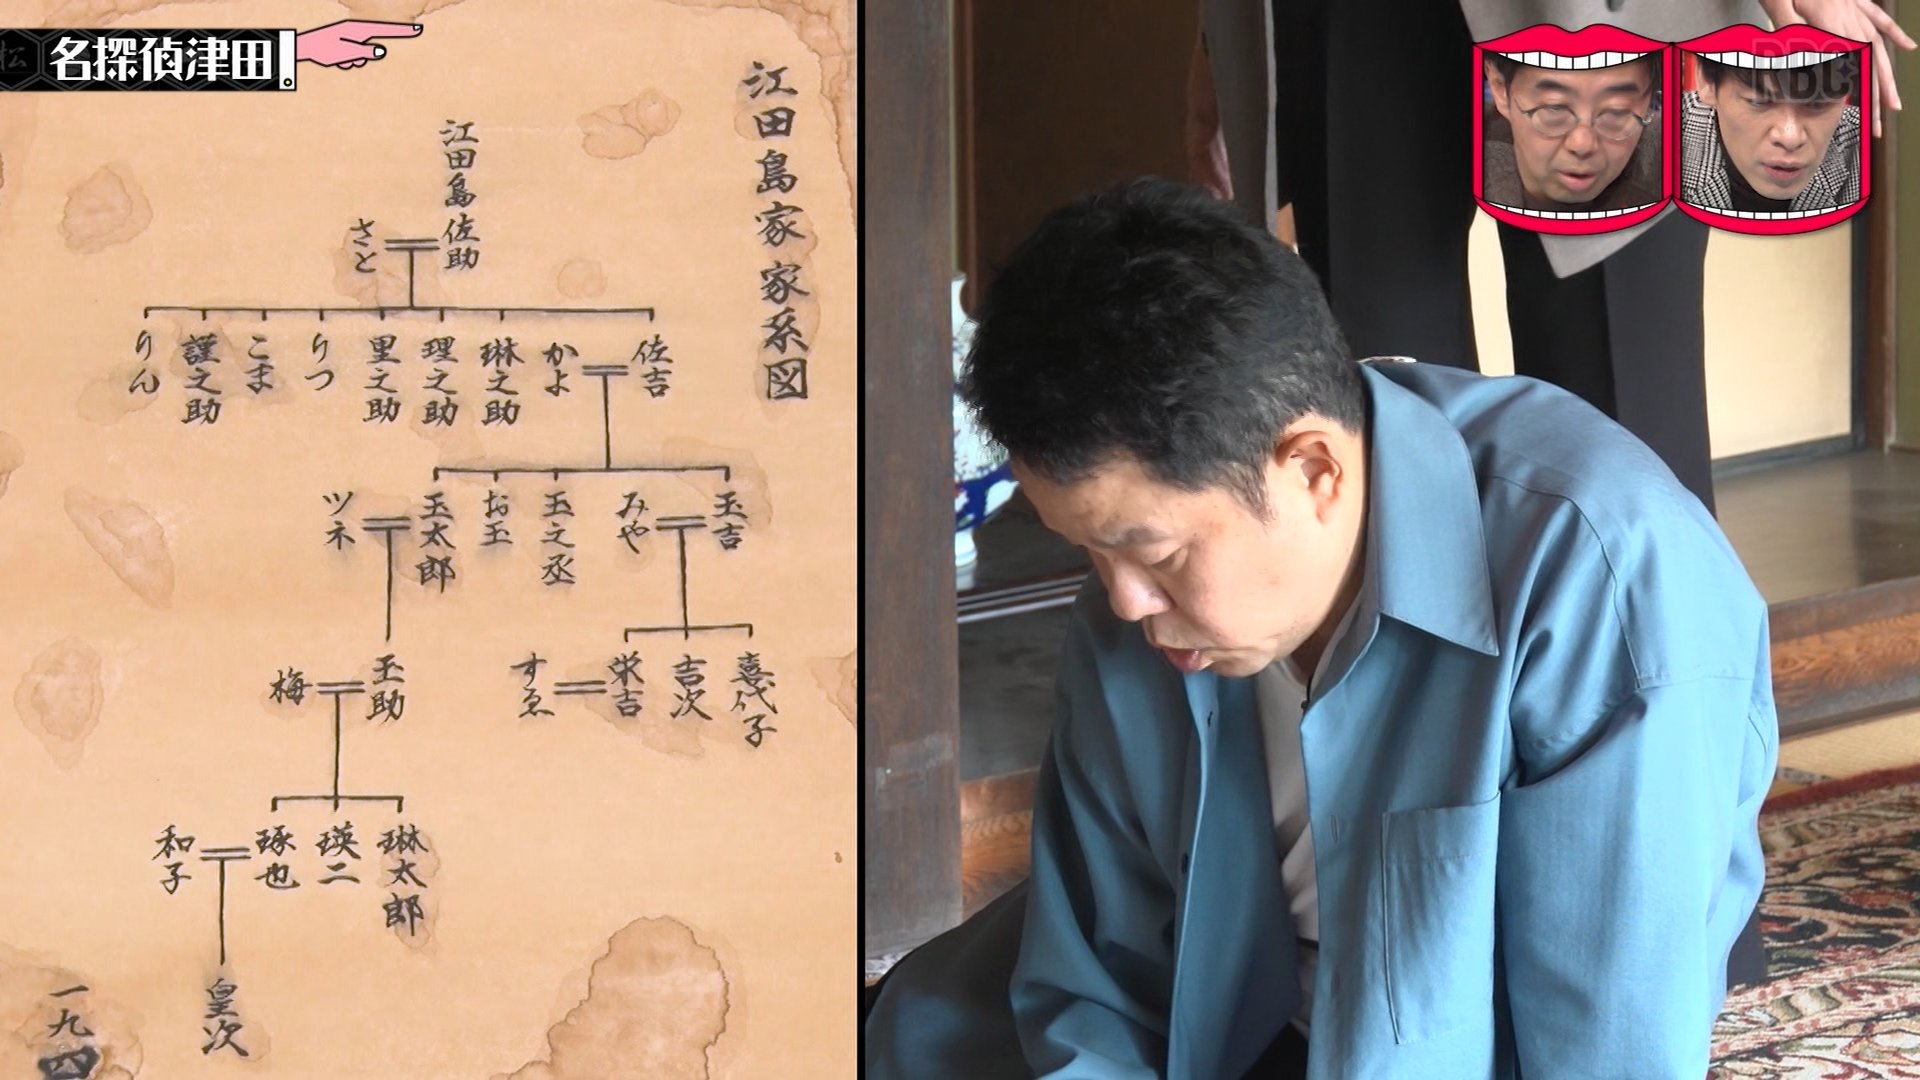 名探偵津田
RBC
江田島家家系図
江田島佐助
さと
佐吉
かよ
琳之助
理之助
里之助
りつ
こま
謹之助
りん
玉吉
みや
玉之丞
お玉
玉太郎
ツネ
喜代子
吉次
栄吉
すゑ
玉助
梅
琳太郎
瑛二
琢也
和子
皇次
一九四